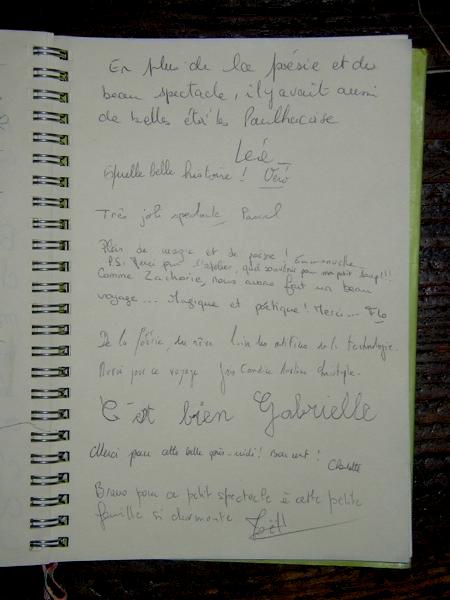 En plus de la poésie et du
beau spectacle, il y avait aussi
de belles étoiles
Léa
Quelle belle histoire ! Véro
Très joli spectacle Pascal
Plein de magie et de poésie ! Emmanuelle
P.S. Merci pour l'atelier, quel souvenir pour ma petit loup !!!
Comme Zacharie, nous avons fait un beau
voyage... Magique et poétique ! Merci... Flo
De la Poésie, du rêve loin des artifices de la technologie.
Merci pour ce voyage
C'est bien Gabrielle
Merci pour cette belle après-midi ! Bon vent !
Charlotte
Bravo pour ce petit spectacle à cette petite
famille si charmante Joël